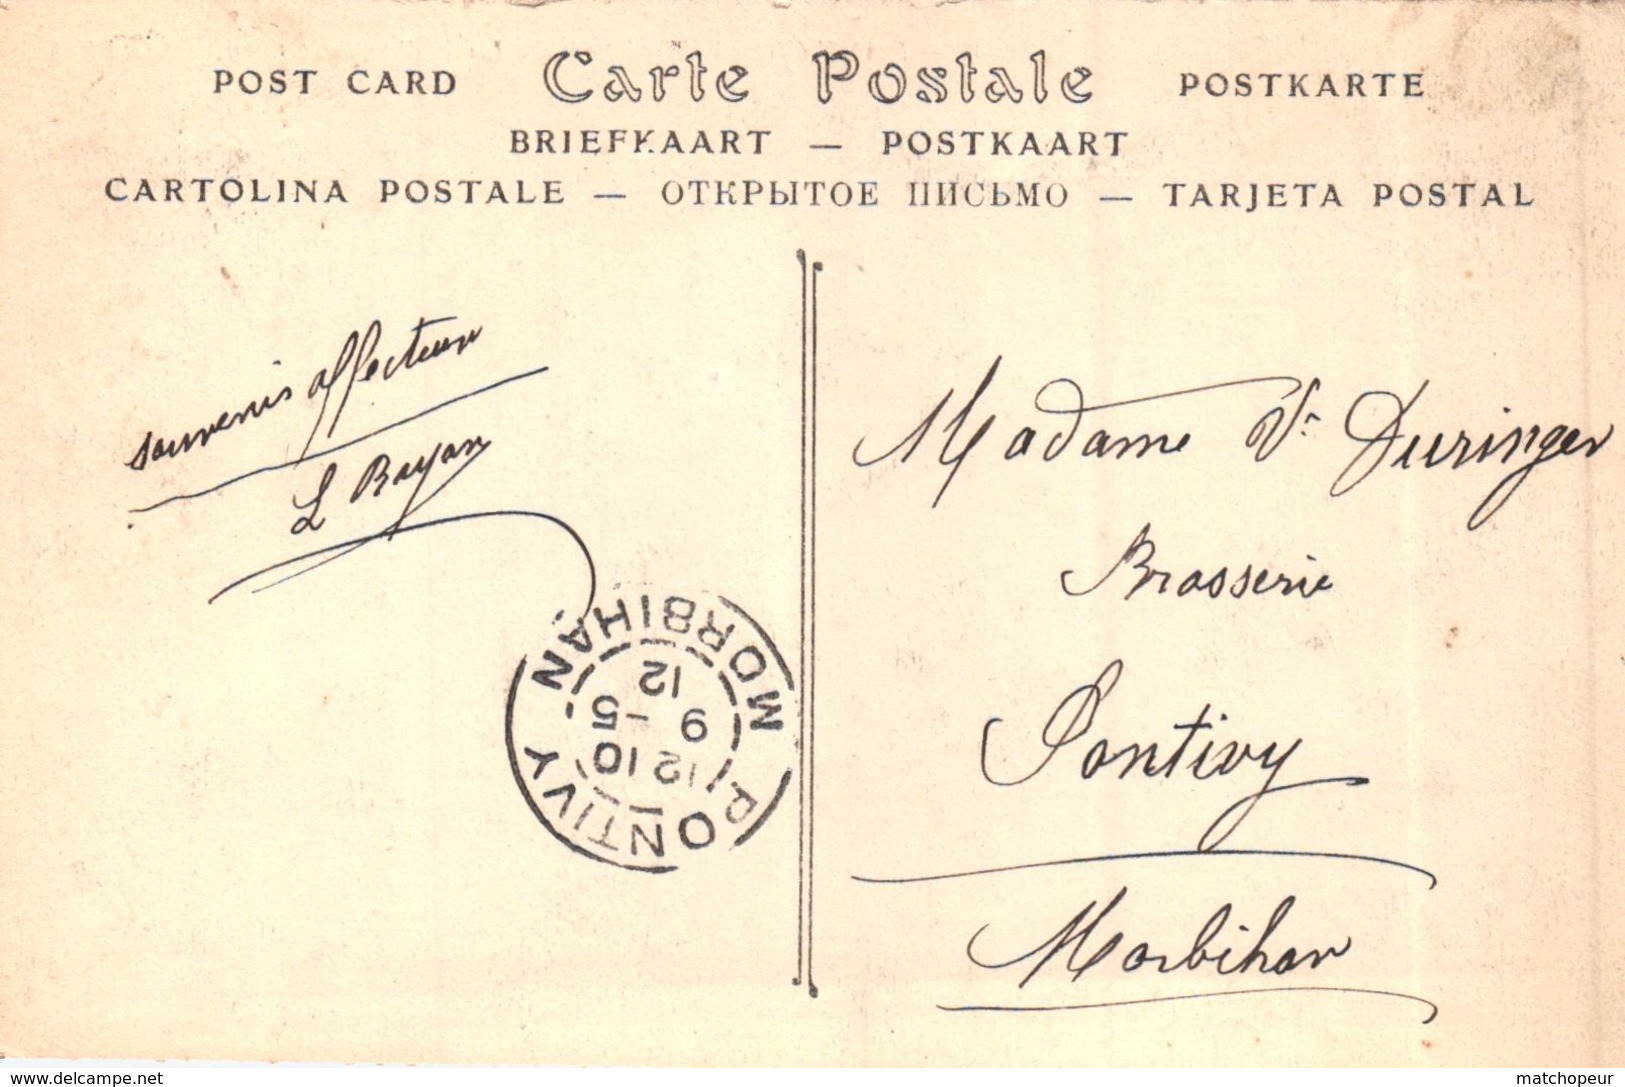 POST CARD Carte Postale POSTKARTE
BRIEFKAART — POSTKAART
CARTOLINA POSTALE — ОТКРЫТОЕ ПИСЬМО — TARJETA POSTAL
souvenirs affectueux
L Bayon
PONTIVY MORBIHAN
12 10
9 -5
12
Madame Vve Duringer
Brasserie
Pontivy
Morbihan
www.delcampe.net
matchopeur